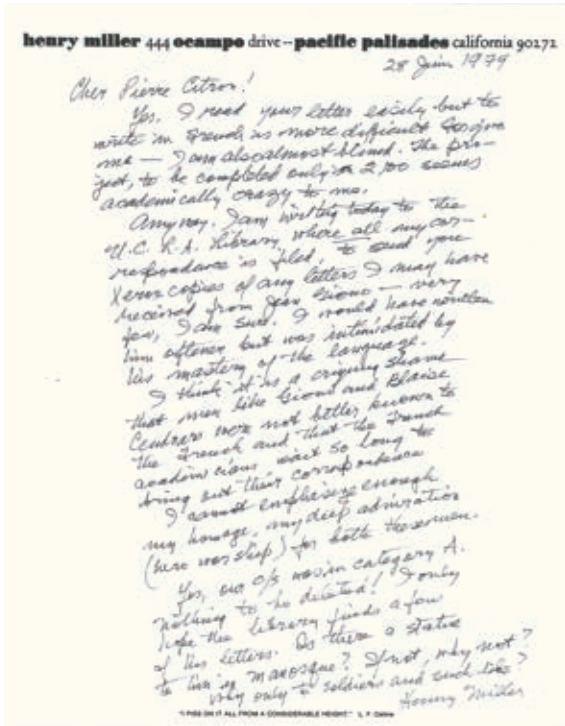 henry miller 444 ocampo drive--pacific palisades california 90272
28 Juin 1979
Cher Pierre Citron!
Yes, I read your letter easily but to
write in French is more difficult. Forgive
me — I am also almost blind. The pro-
ject, to be completed only in 2,000 seems
academically crazy to me.
Anyway, I am writing today to the
U.C.L.A. library, where all my cor-
respondance is filed, to send you
Xerox copies of any letters I may have
received from Jean Giono — very
few, I am sure. I would have written
him oftener but was intimidated by
his mastery of the language.
I think it is a crying shame
that men like Giono and Blaise
Cendrars were not better known to
the French and that the French
academicians wait so long to
bring out their correspondence
I cannot emphasize enough
my homage, my deep admiration
(hero worship) for both these men.
Yes, our was in category A.
nothing to be deleted! I only
hope the library finds a few
of his letters. Is there a statue
to him in Manosque? If not, why not?
Why only to soldiers and such like?
Henry Miller
"I PISS ON IT ALL FROM A CONSIDERABLE HEIGHT." L. F. Céline